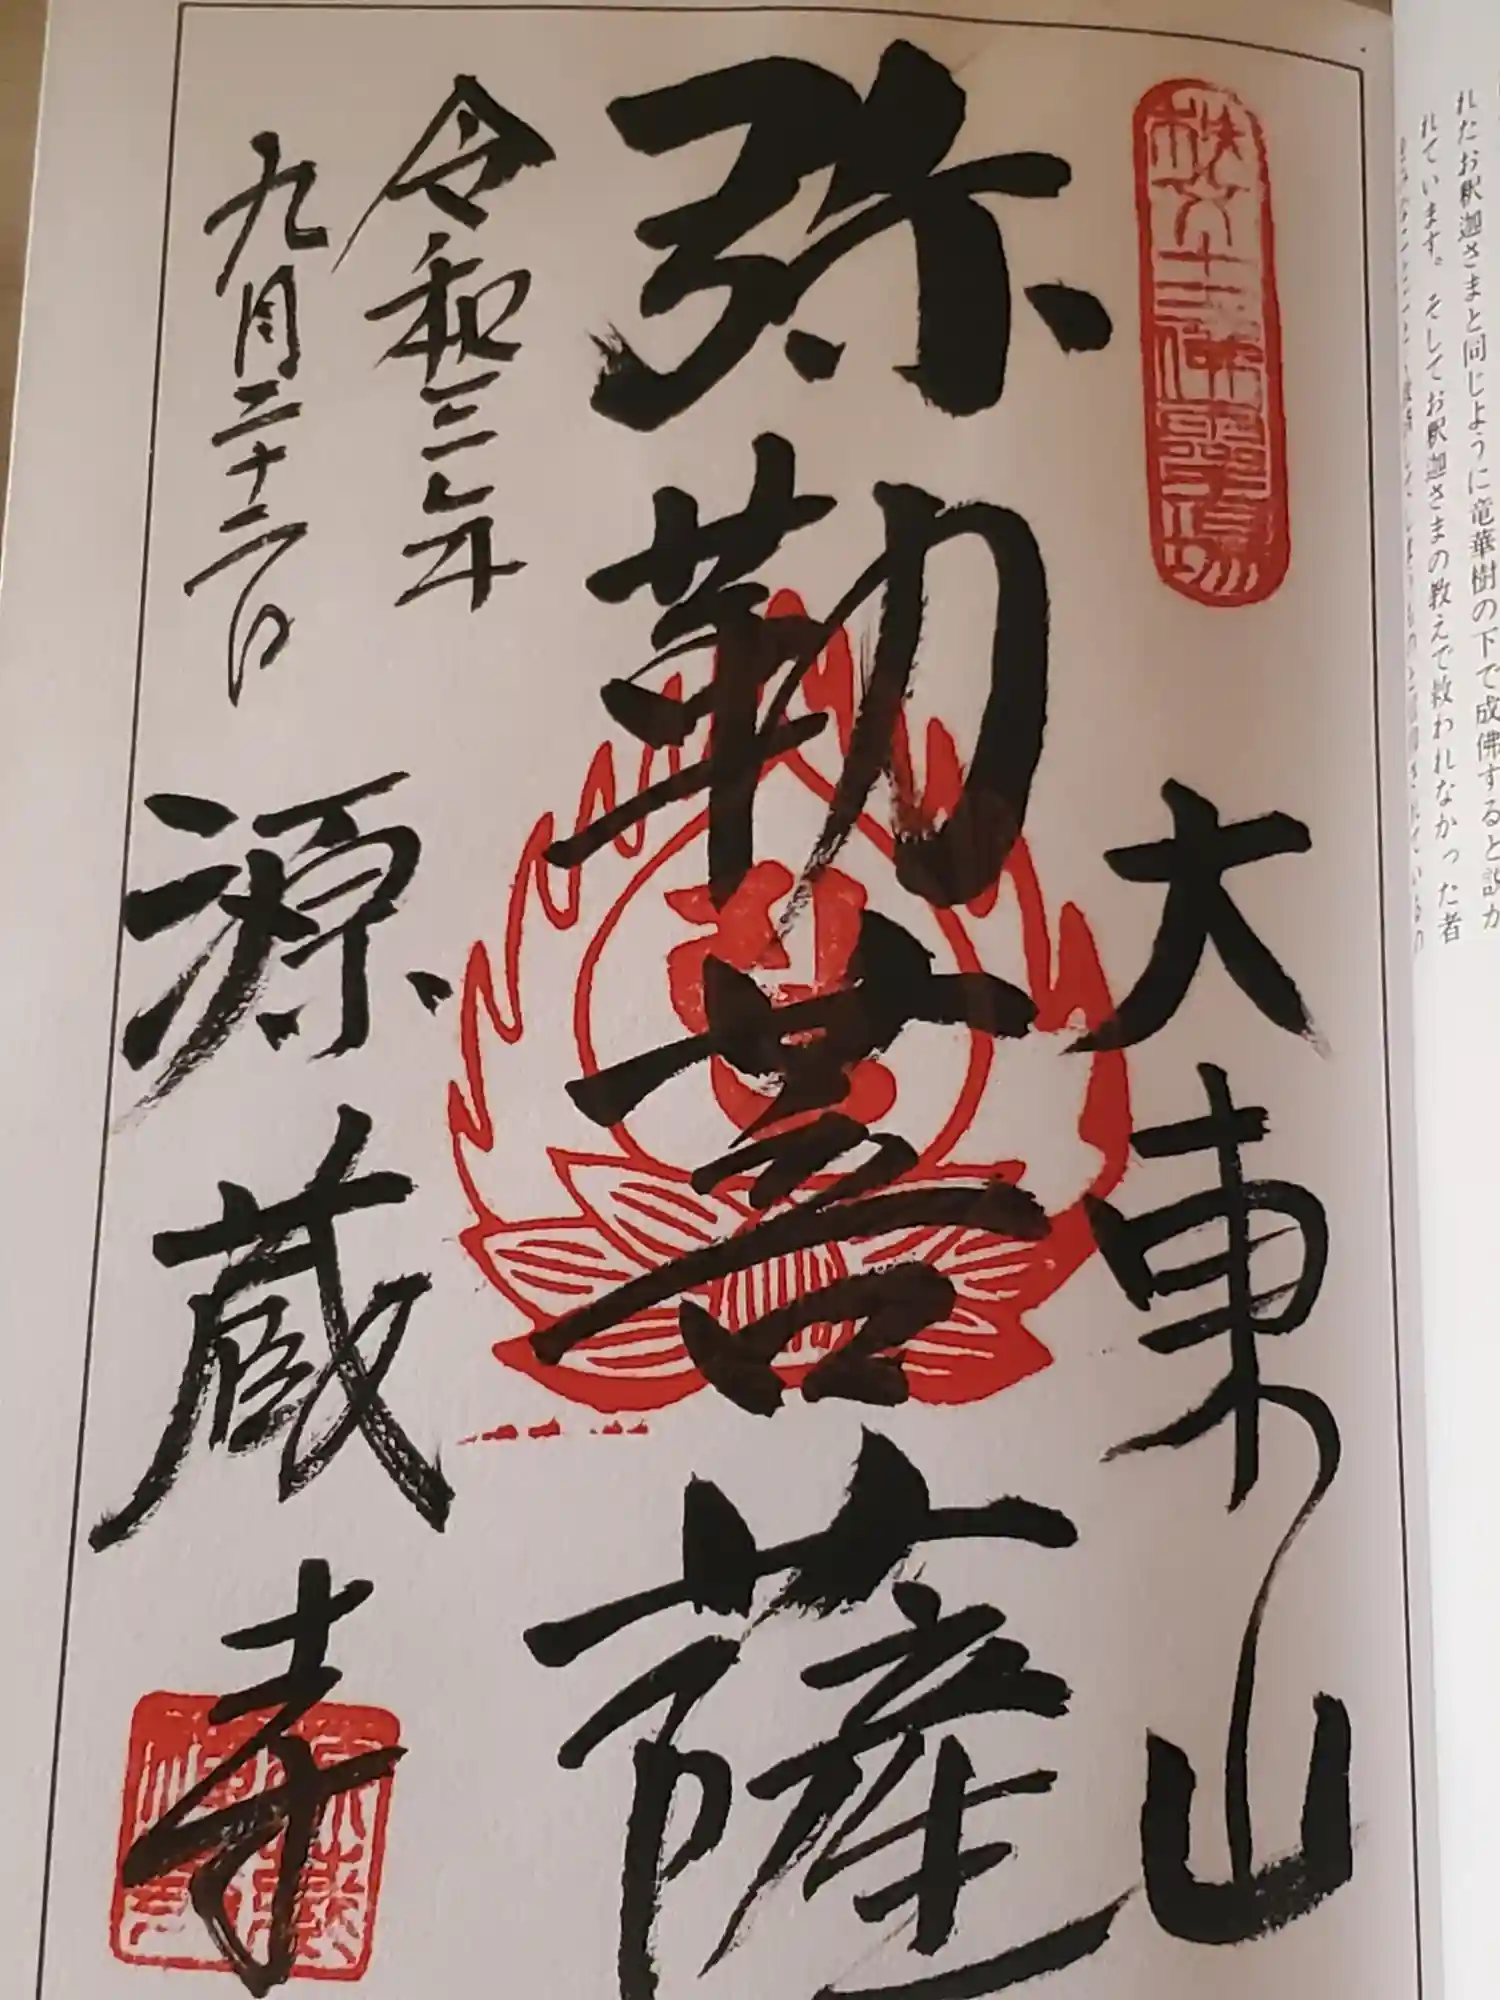 れたお釈迦さまと同じように竜華樹の下で成佛すると説か
れています。そしてお釈迦さまの教えで救われなかった者
秩父十三佛霊場
大東山
弥勒菩薩
令和三年
九月二十六日
源蔵寺